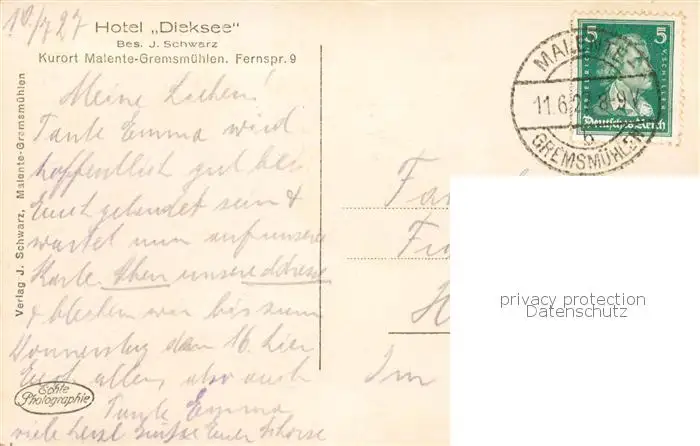 10/7 27
Hotel „Dieksee“
Bes. J. Schwarz
Kurort Malente-Gremsmühlen. Fernspr. 9
Verlag J. Schwarz, Malente-Gremsmühlen
Meine Lieben!
Tante Emma wird
hoffentlich gut bei
Euch gelandet sein &
wartet nun auf unsere
Karte. unsere Adresse
& bleiben wir bis zum
Donnerstag den 16. hier
Euch allen, also auch
Tante Emma
viele herzl Grüsse Euer
Echte
Photographie
MALENTE
11.6.2 8-9
b
GREMSMÜHLEN
5 5
FRIEDRICH V. SCHILLER
Deutsches Reich
Im
privacy protection
Datenschutz